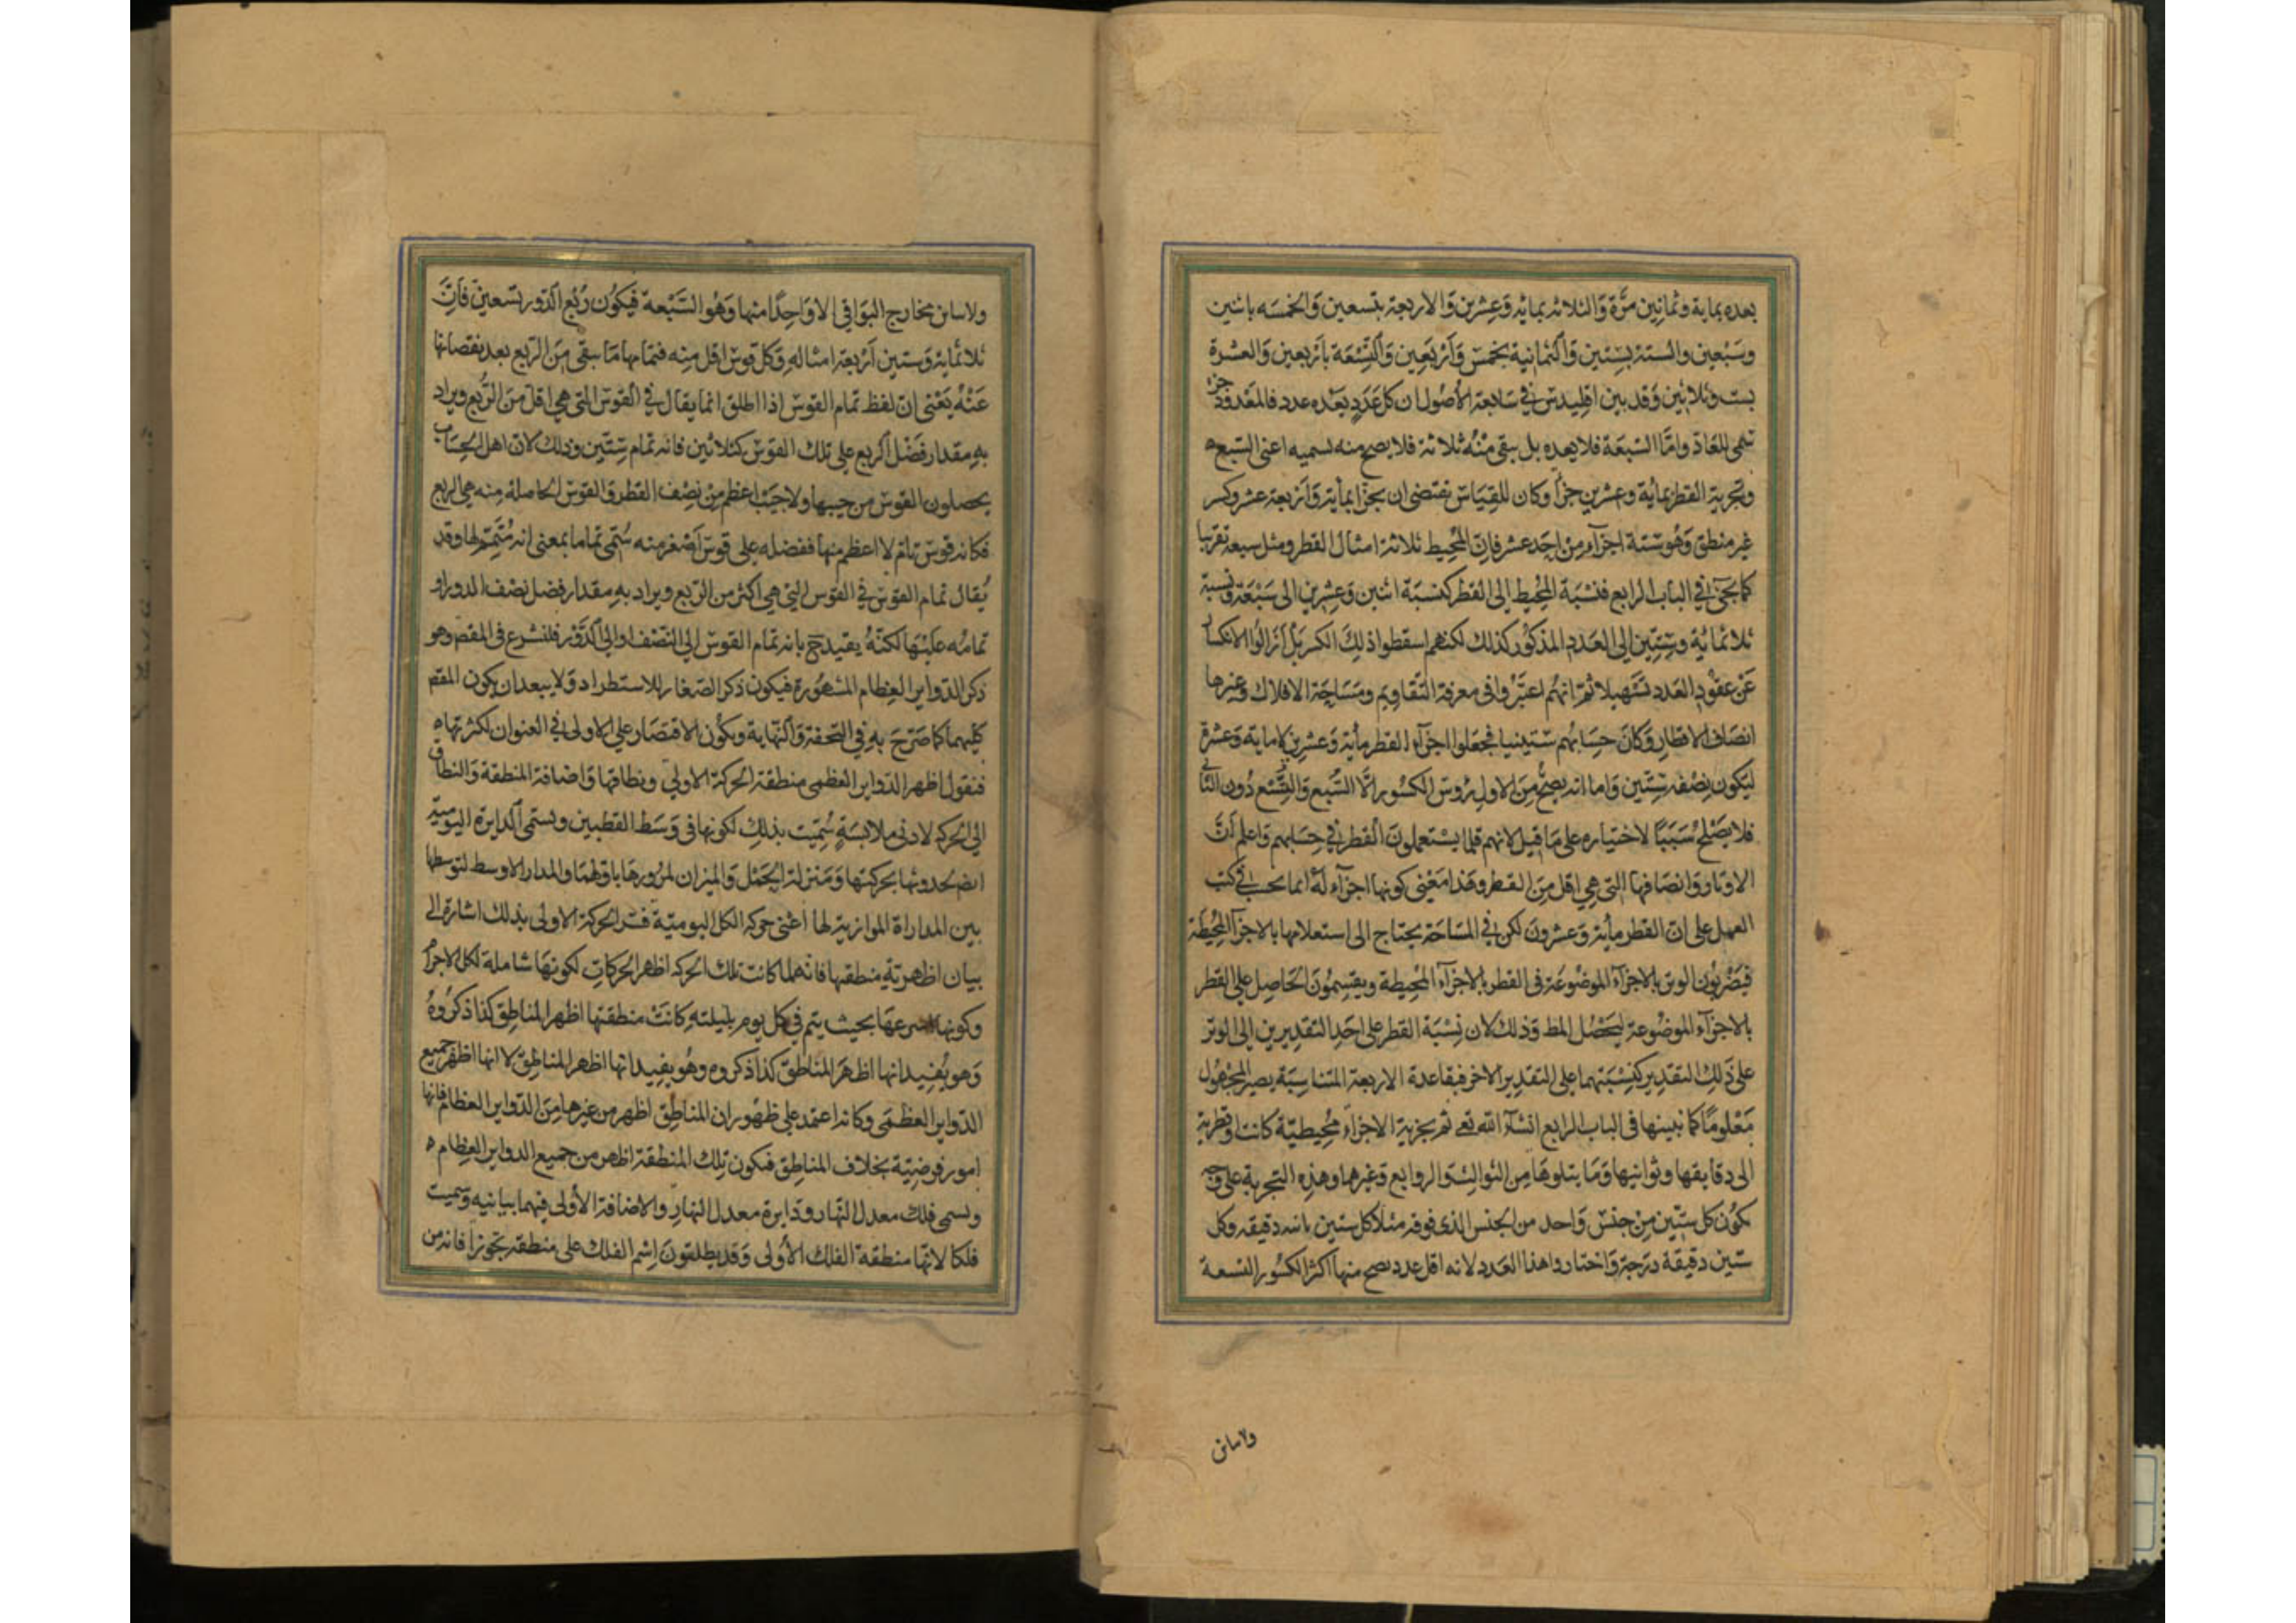 يعده بماية وثمانين مرة والثلاثه بمايه وعشرين والاربعة بتسعين والخمسه باثنين
وسبعين والستة بستين والثمانية بخمس واربعين والتسعة باربعين والعشرة
بست وثلاثين وقد بين اقليدس في سابعة الأصول ان كل عدد يعده عدد فالمعدود جزء
سمي للعاد واما السبعة فلا يعده بل يبقى منه ثلاثة فلا يصح منه لسميه اعنى السبع ه
وتجزية القطر بمائة وعشرين جزأ وكان للقياس يقتضى ان يجزأ بمأية واربعة عشر وكسر
غير منطق وهو ستة اجزاء من احد عشر فان المحيط ثلاثة امثال القطر ومثل سبعه تقريبا
كما يجئ في الباب الرابع فنسبة المحيط الى القطر كنسبة اثنين وعشرين الى سبعة ونسبة
ثلاثمائة وستين الى العدد المذكور كذلك لكنهم اسقطوا ذلك الكسر بل ازالوا الانكسار
عن عقود العدد تسهيلا ثم انهم اعتبروا في معرفة التقاويم ومساحة الافلاك وغيرها
انصاف الاقطار وكان حسابهم ستينيا فجعلوا اجزاء القطر مأية وعشرين لا ماية وعشرة
ليكون نصفه ستين واما انه يصح من الاول رؤس الكسور الا السبع والتسع دون الثاني
فلا يصلح سببا لاختياره على ما قيل لانهم قلما يستعملون القطر في حسابهم واعلم ان
الاوتار وانصافها التي هي اقل من القطر وهذا معنى كونها اجزاء له انما تحسب في كتب
العمل على ان القطر مأية وعشرون لكن في المساحة يحتاج الى استعلامها بالاجزاء المحيطة
فيضربون الوتر بالاجزاء الموضوعة في القطر بالاجزاء المحيطة ويقسمون الحاصل على القطر
بالاجزاء الموضوعة ليحصل المط وذلك لان نسبة القطر على احد التقديرين الى الوتر
على ذلك التقدير كنسبتهما على التقدير الاخر فبقاعدة الاربعة المتناسبة يصير المجهول
معلوما كما نبينها في الباب الرابع انشاء الله تعه ثم تجزية الاجزاء محيطية كانت او قطرية
الى دقايقها وثوانيها وما يتلوها من الثوالث والروابع وغيرها وهذه التجربة على وجه
يكون كل ستين من جنس واحد من الجنس الذي فوقه مثلا كل ستين ثانيه دقيقه وكل
ستين دقيقة درجة واختاروا هذا العدد لانه اقل عدد يصح منها اكثر الكسور التسعة
ولاباين
ولاباين مخارج البواقي الا واحدا منها وهو السبعة فيكون ربع الدور تسعين فان
ثلاثماية وستين اربعة امثاله وكل قوس اقل منه فتمامها ما يبقى من الربع بعد نقصانها
عنه يعنى ان لفظ تمام القوس اذا اطلق انما يقال في القوس التي هي اقل من الربع ويراد
به مقدار فضل الربع على تلك القوس كثلاثين فانه تمام ستين وذلك لان اهل الحساب
يحصلون القوس من جيبها ولا جيب اعظم من نصف القطر والقوس الحاصلة منه هي الربع
فكانه قوس تام لا اعظم منها ففضله على قوس اصغر منه سمى تماما بمعنى انه متمم لها وقد
يقال تمام القوس في القوس التي هي اكثر من الربع ويراد به مقدار فضل نصف الدور او
تمامه عليها لكنه يقيد ح بانه تمام القوس الى النصف او الى الدور فلنشرع في المقصد وهو
ذكر الدواير العظام المشهورة فيكون ذكر الصغار للاستطراد ولا يبعد ان يكون المقصد
كليهما كما صرح به في التحفة والنهاية ويكون الاقتصار على الاولى في العنوان لكثرتها ه
فنقول اظهر الدواير العظمى منطقة الحركة الاولى ونطاقها واضافة المنطقة والنطاق
الى الحركه لادنى ملابسة سميت بذلك لكونها في وسط القطبين وتسمى الدايرة اليومية
ايضا لحدوثها بحركتها ومنزلة الحمل والميزان لمرورها باولهما والمدار الاوسط لتوسطها
بين المدارات الموازية لها اعنى حركه الكل اليومية فسر الحركة الاولى بذلك اشارة الى
بيان اظهرية منطقها فانه لما كانت تلك الحركه اظهر الحركات لكونها شاملة لكل الاجرام
وكونها اسرعها بحيث يتم في كل يوم بليلته كانت منطقتها اظهر المناطق كذا ذكروه
وهو يفيد انها اظهر المناطق كذا ذكروه وهو يفيد انها اظهر المناطق لا انها اظهر جميع
الدواير العظمى وكانه اعتمد على ظهور ان المناطق اظهر من غيرها من الدواير العظام فانها
امور فرضية بخلاف المناطق فيكون تلك المنطقة اظهر من جميع الدواير العظام ه
وتسمى فلك معدل النهار ودايرة معدل النهار والاضافة الأولى فيهما بيانيه وسميت
فلكا لانها منطقة الفلك الأولى وقد يطلقون اسم الفلك على منطقه تجوزا فانه من